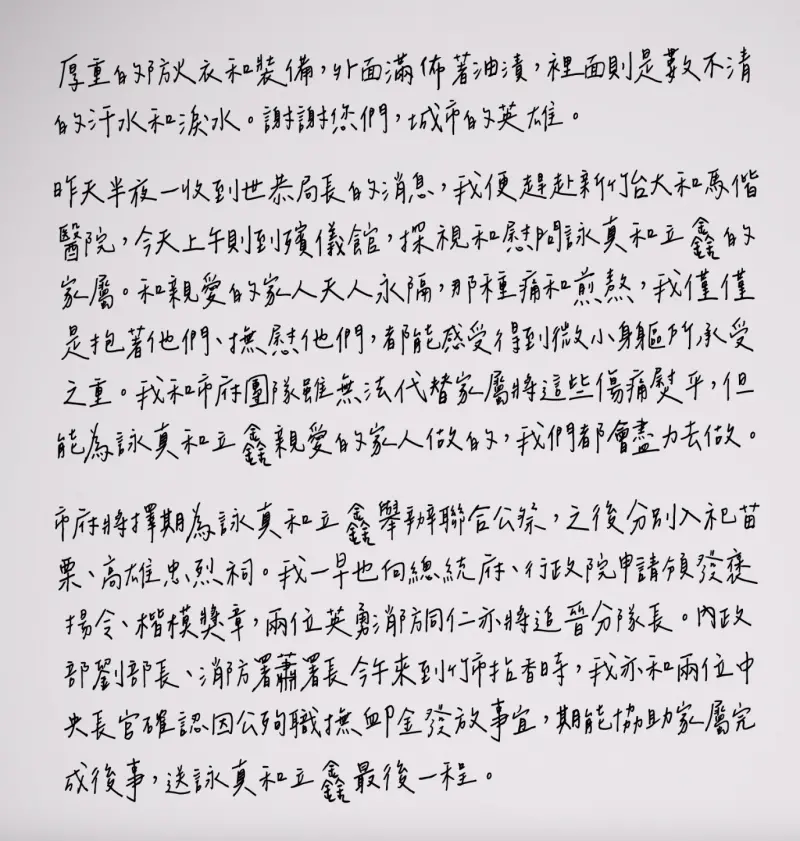 厚重的防火衣和裝備，外面滿佈著油漬，裡面則是數不清
的汗水和淚水。謝謝您們，城市的英雄。
昨天半夜一收到世恭局長的消息，我便趕赴新竹台大和馬偕
醫院，今天上午則到殯儀館，探視和慰問詠真和立鑫的
家屬。和親愛的家人天人永隔，那種痛和煎熬，我僅僅
是抱著他們、撫慰他們，都能感受得到微小身軀所承受
之重。我和市府團隊雖無法代替家屬將這些傷痛熨平，但
能為詠真和立鑫親愛的家人做的，我們都會盡力去做。
市府將擇期為詠真和立鑫舉辦聯合公祭，之後分別入祀苗
栗、高雄忠烈祠。我一早也向總統府、行政院申請頒發褒
揚令、楷模獎章，兩位英勇消防同仁亦將追晉分隊長。內政
部劉部長、消防署蕭署長今午來到竹市拈香時，我亦和兩位中
央長官確認因公殉職撫卹金發放事宜，期能協助家屬完
成後事，送詠真和立鑫最後一程。